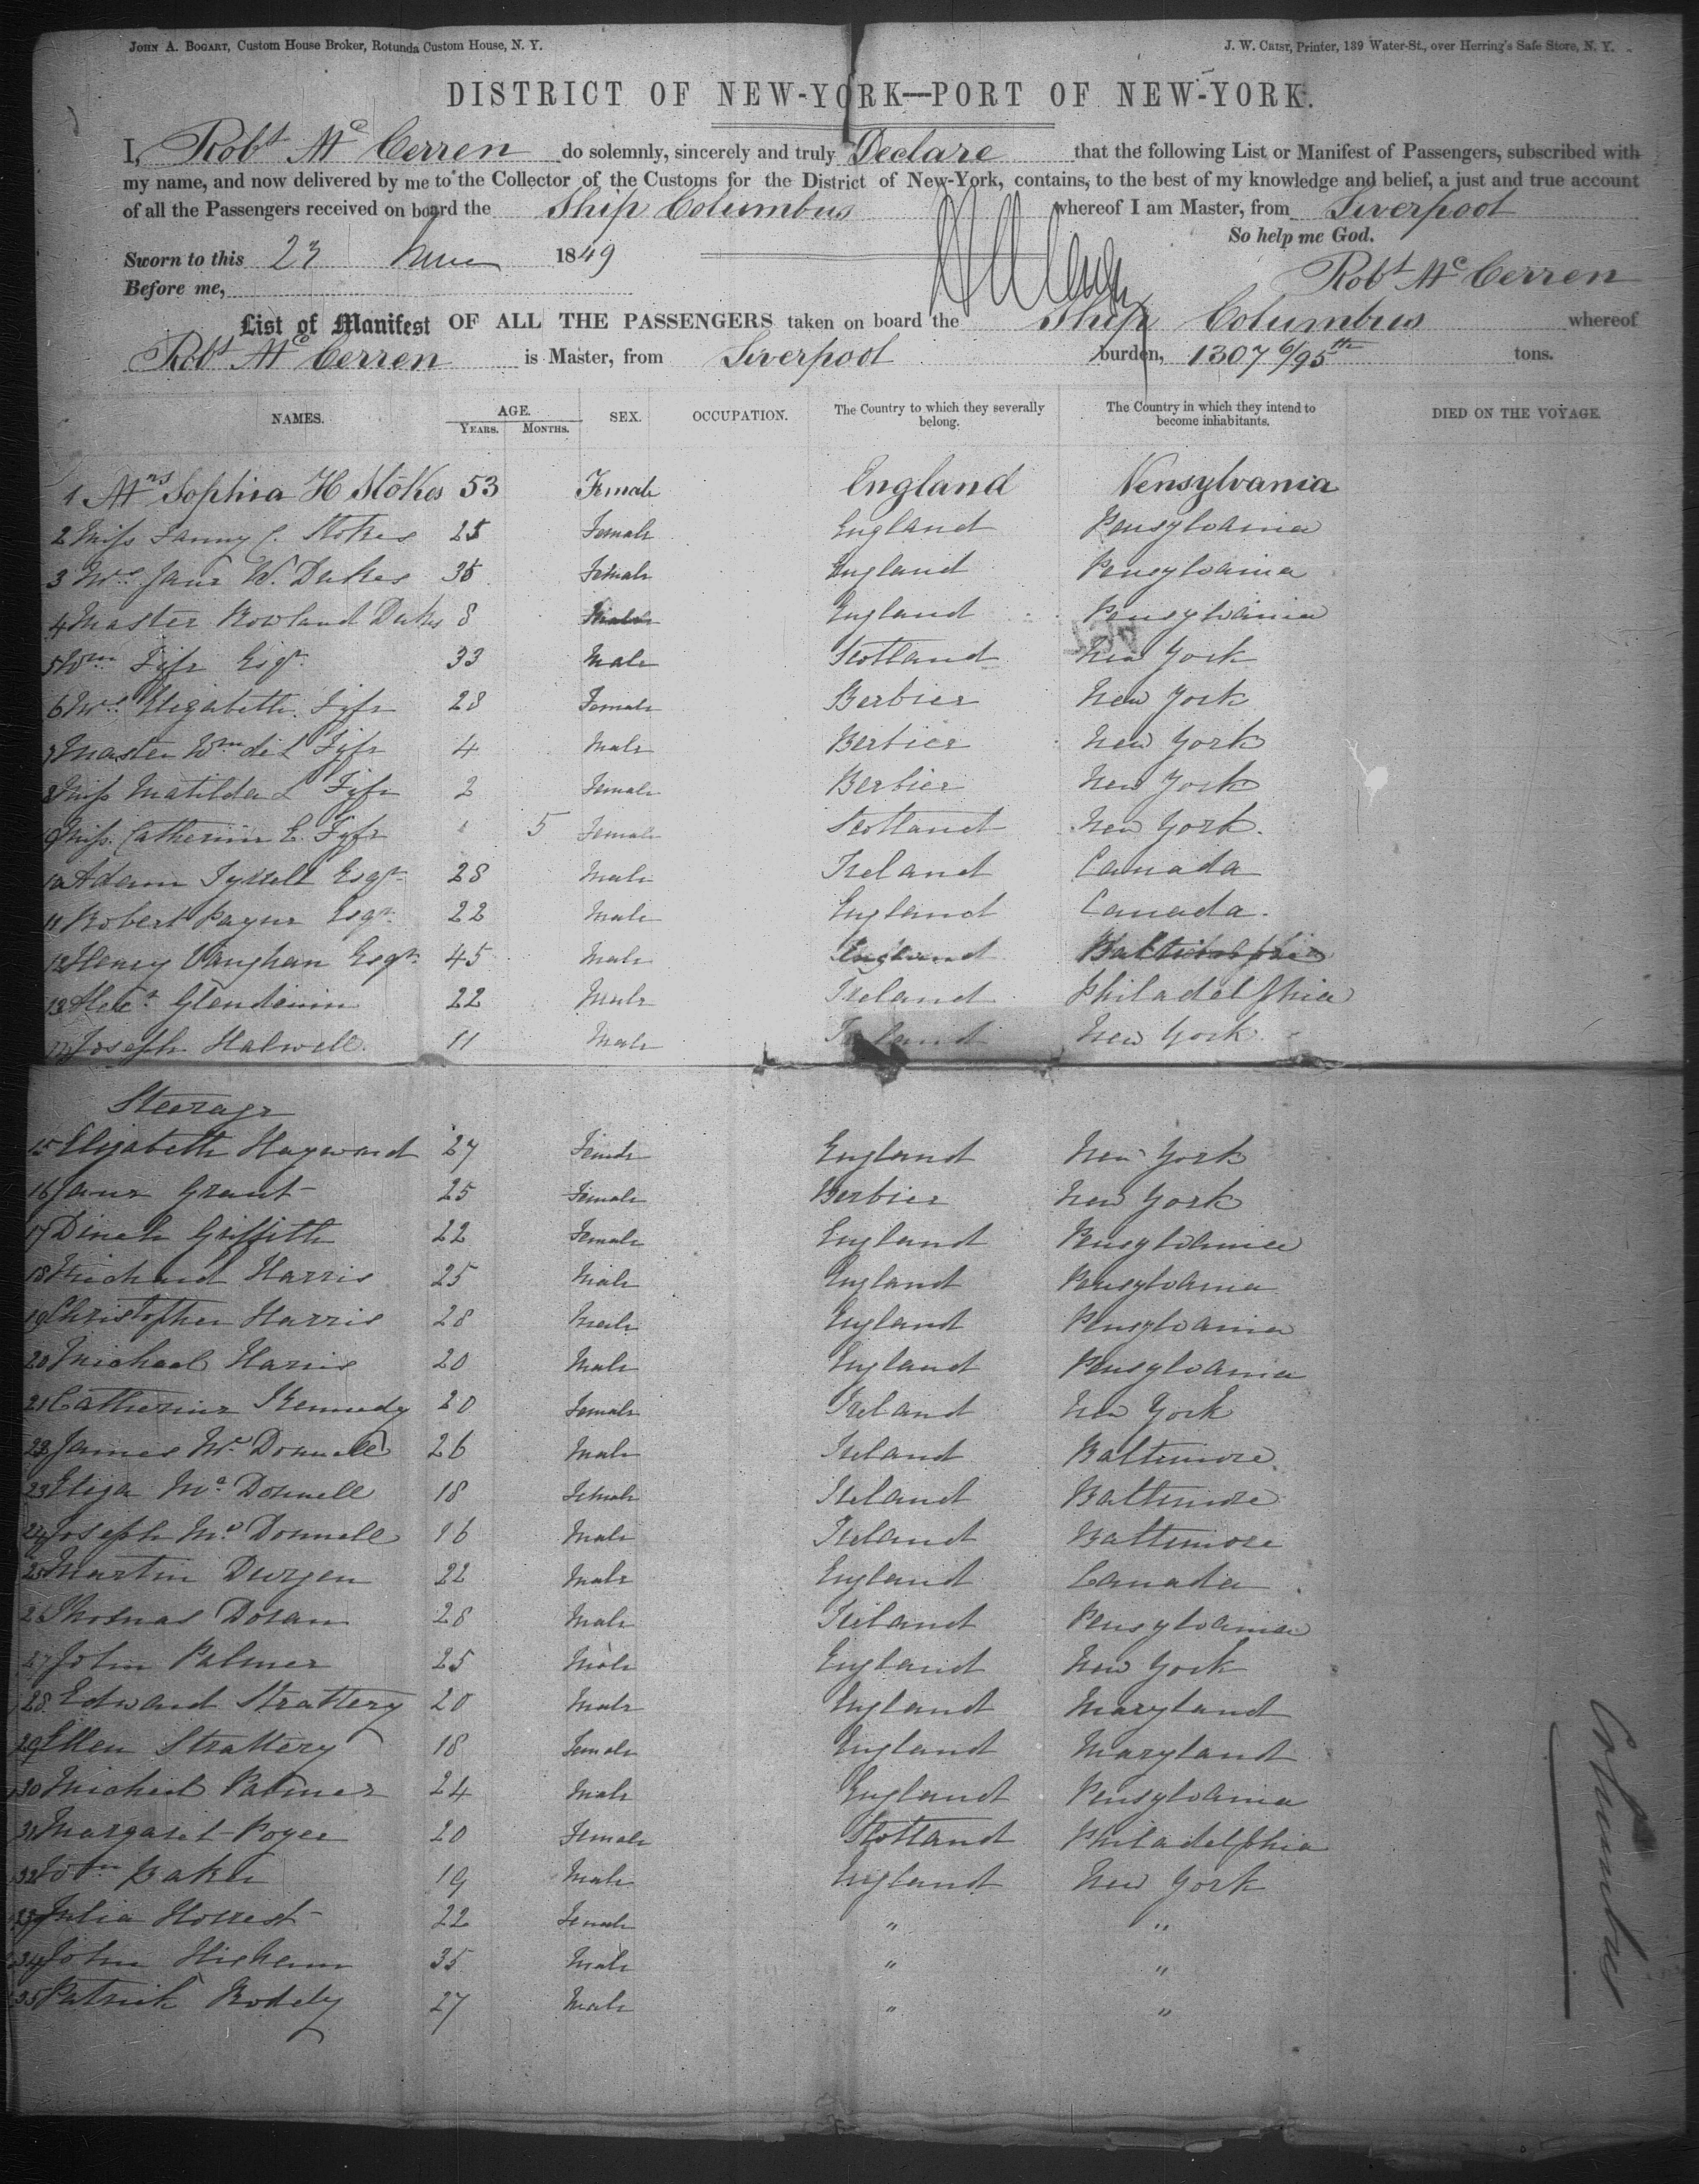 JOHN A. BOGART, Custom House Broker, Rotunda Custom House, N. Y. J. W. CRIST, Printer, 139 Water-St., over Herring's Safe Store, N. Y.
DISTRICT OF NEW-YORK—PORT OF NEW-YORK.
I, Robt Mc Cerren do solemnly, sincerely and truly Declare that the following List or Manifest of Passengers, subscribed with
my name, and now delivered by me to the Collector of the Customs for the District of New-York, contains, to the best of my knowledge and belief, a just and true account
of all the Passengers received on board the Ship Columbus whereof I am Master, from Liverpool
So help me God.
Sworn to this 23 June 1849
Robt Mc Cerren
Before me,
List of Manifest OF ALL THE PASSENGERS taken on board the Ship Columbus whereof
Robt Mc Cerren is Master, from Liverpool burden, 1307 6/95th tons.
NAMES. AGE. YEARS. MONTHS. SEX. OCCUPATION. The Country to which they severally belong. The Country in which they intend to become inhabitants. DIED ON THE VOYAGE.
1 Mrs Sophia H Stokes 53 Female England Pensylvania
2 Miss Fanny C. Stokes 25 Female England Pensylvania
3 Mrs Jane W. Dukes 35 Female England Pensylvania
4 Master Rowland Dukes 8 Male England Pensylvania
5 Wm Fyfe Esqr 33 Male Scotland New York
6 Mrs Elizabeth Fyfe 28 Female Berbier New York
7 Master Wm de L Fyfe 4 Male Berbier New York
8 Miss Matilda L Fyfe 2 Female Berbier New York
9 Miss Catherine E. Fyfe 5 Female Scotland New York.
10 Adam Tyrrell Esqr 28 Male Ireland Canada
11 Robert Payne Esqr 22 Male England Canada.
12 Henry Vaughan Esqr 45 Male England
13 Alexr Glendenin 22 Male Ireland Philadelphia
14 Joseph Halwell. 11 Male Ireland New York.
Steerage
15 Elizabeth Hayward 27 Female England New York
16 Jane Grant 25 Female Berbier New York
17 Dinah Griffith 22 Female England Pensylvania
18 Richard Harris 25 Male England Pensylvania
19 Christopher Harris 28 Male England Pensylvania
20 Michael Harris 20 Male England Pensylvania
21 Catherine Kennedy 20 Female Ireland New York
22 James Mc Donnell 26 Male Ireland Baltimore
23 Eliza Mc Donnell 18 Female Ireland Baltimore
24 Joseph Mc Donnell 16 Male Ireland Baltimore
25 Martin Durgen 22 Male England Canada
26 Thomas Doran 28 Male Ireland Pensylvania
27 John Palmer 25 Male England New York
28 Edward Strattery 20 Male England Maryland
29 Ellen Strattery 18 Female England Maryland
30 Michael Palmer 24 Male England Pensylvania
31 Margaret Poyee 20 Female Scotland Philadelphia
32 Wm Baker 19 Male England New York
33 Julia Horrest 22 Female " "
34 John Hickem 35 Male " "
35 Patrick Boddy 27 Male " "
Columbus